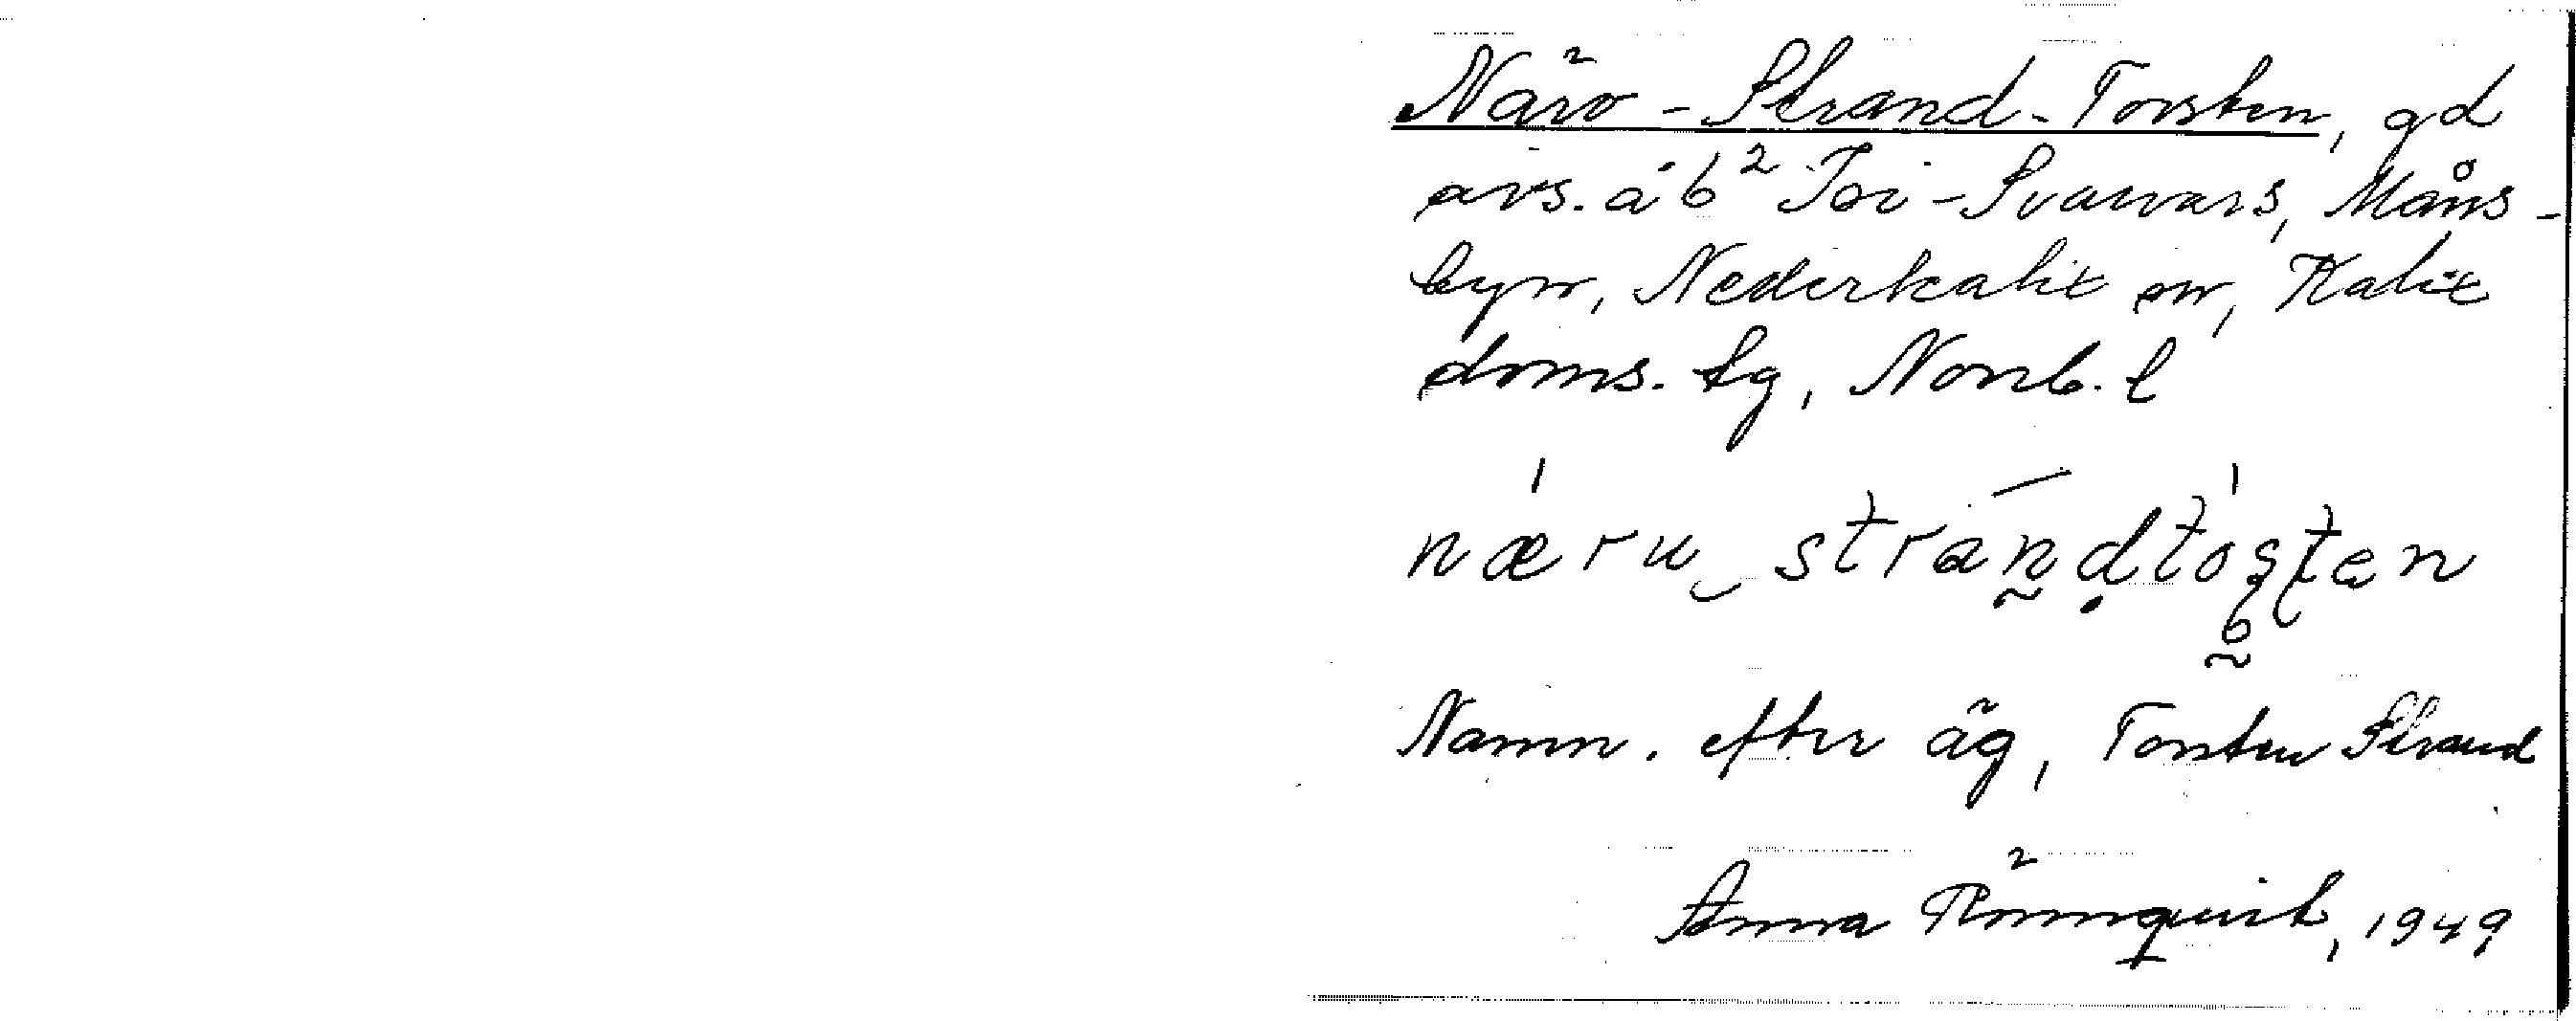 Närv-Strand-Torsten, gd
avs. å 6² Joi-Svarvars, Måns-
byn, Nederkalix sn, Kalix
doms. lg, Norrb. l
næru strandtosten
Namn. efter äg, Torsten Strand
Anna Rönnquist, 1949